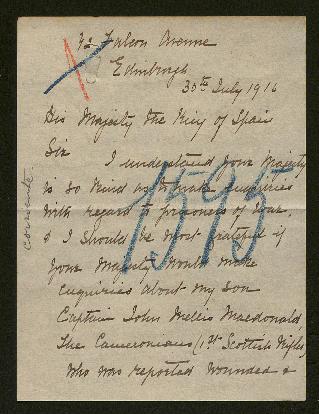 42 Falcon Avenue
Edinburgh
30th July 1916
His Majesty the King of Spain
Sir
I understand your Majesty
is so kind as to make enquiries
with regard to prisoners of War,
& I should be most grateful if
your Majesty would make
enquiries about my son
Captain John Mellis Macdonald,
The Cameronians (1st Scottish Rifles)
who was reported wounded &
1595